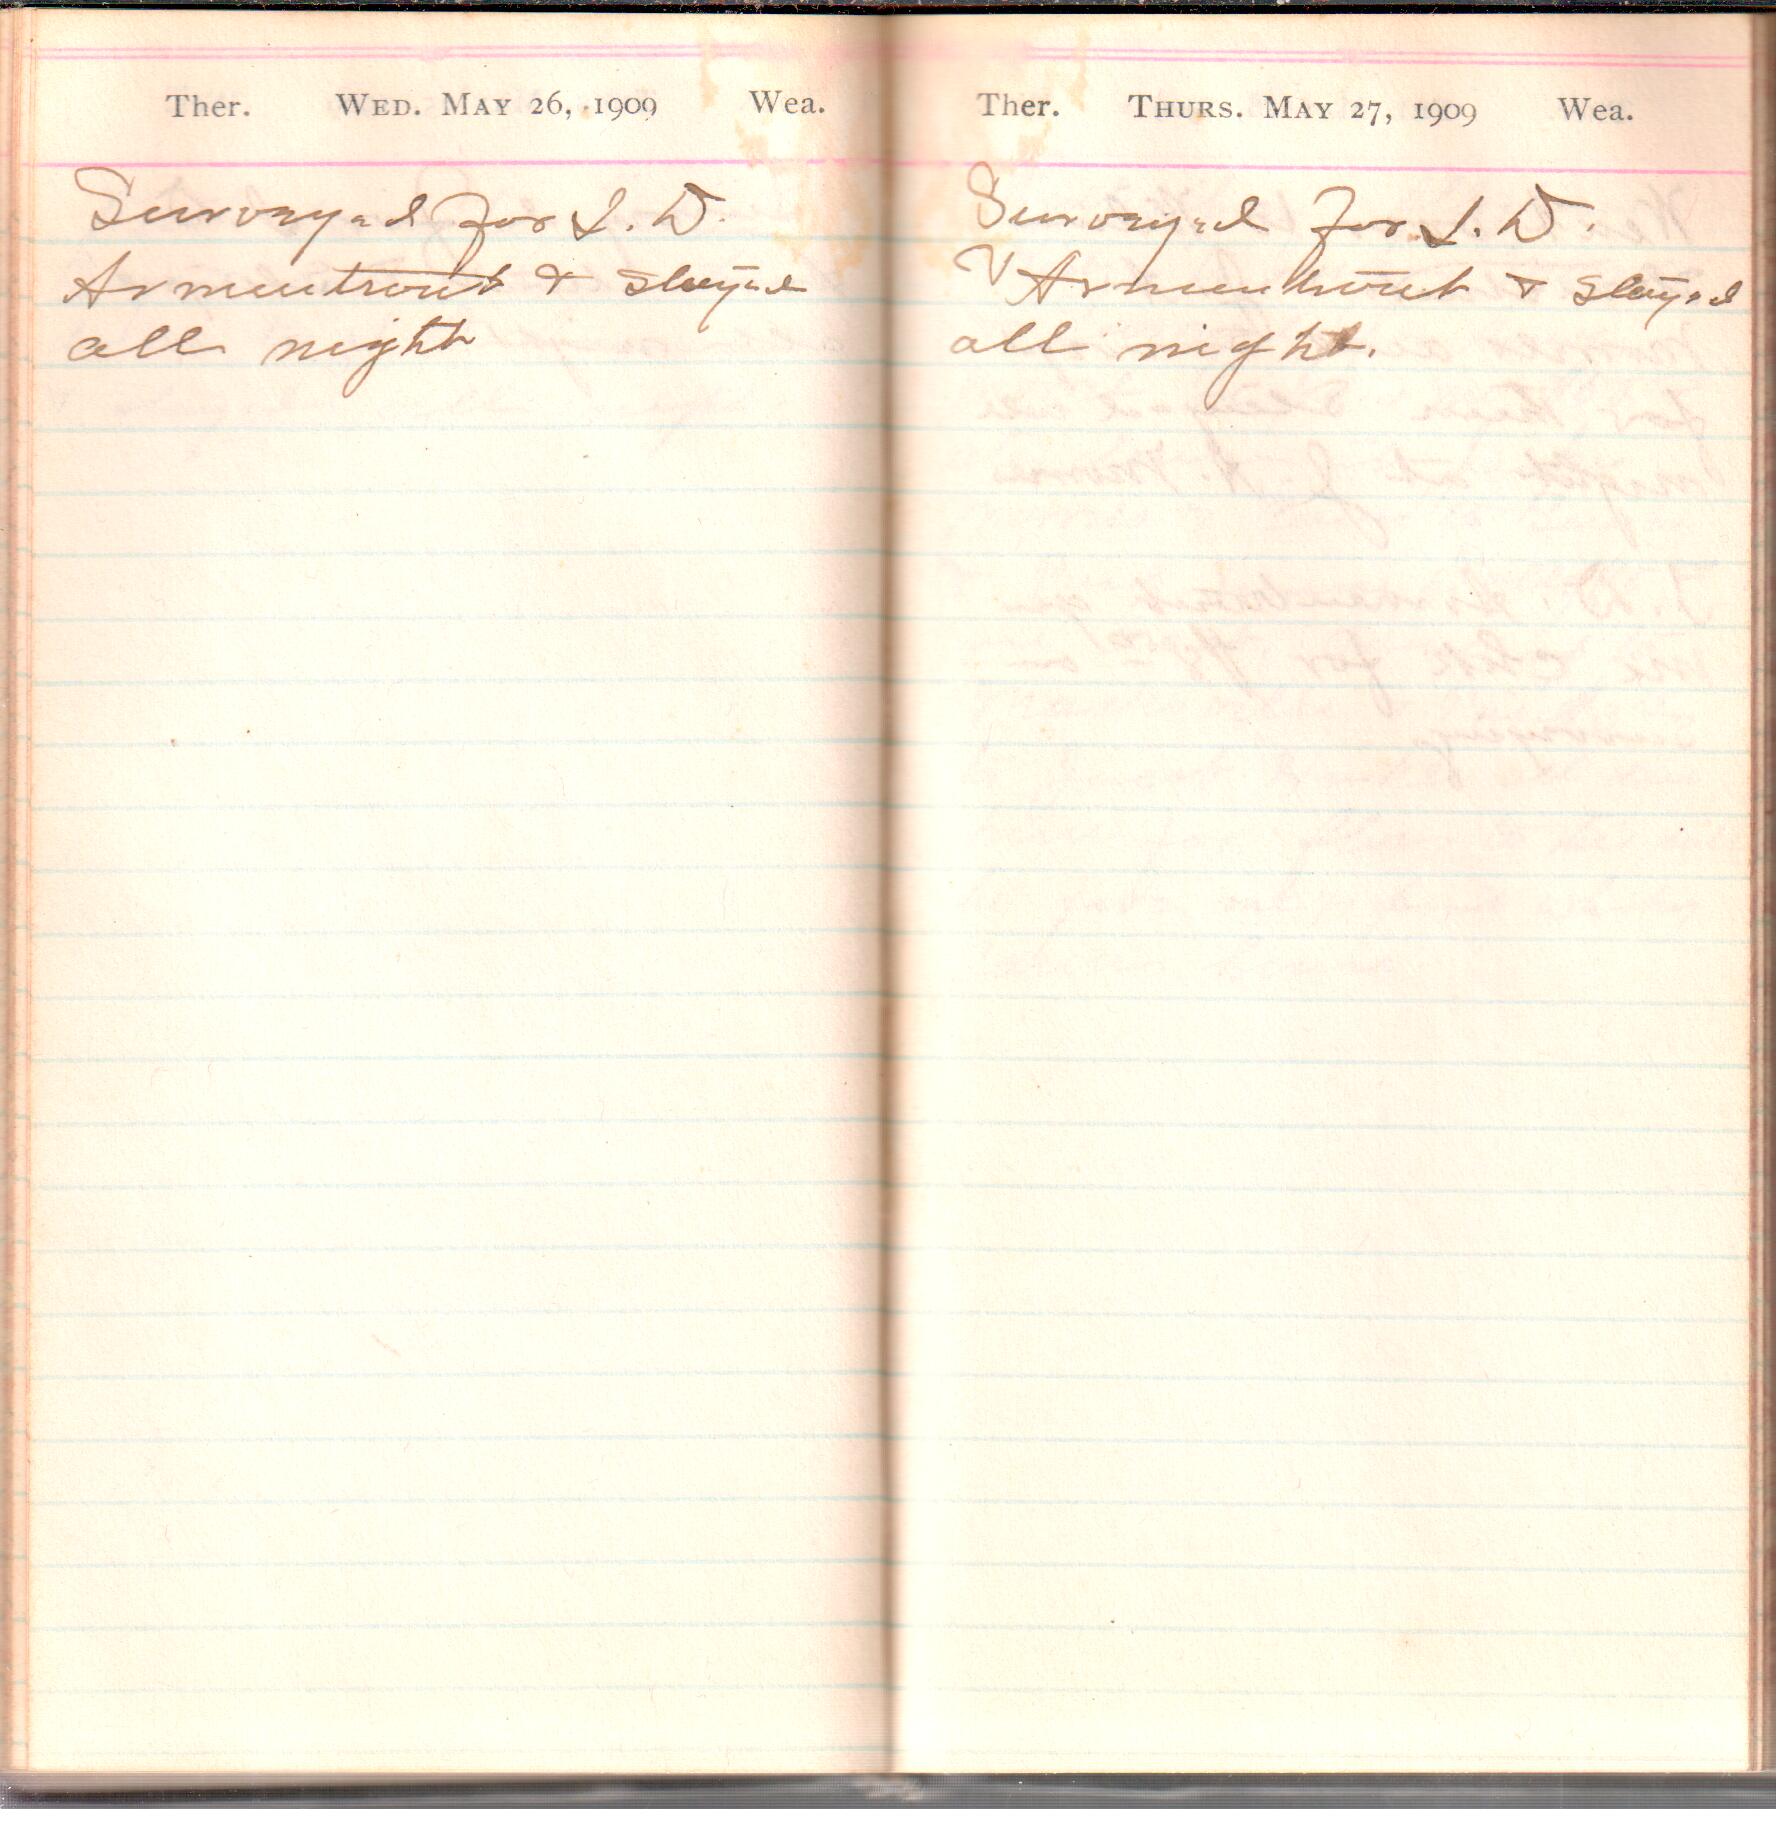 Ther. WED. MAY 26, 1909 Wea.
Surveyed for I. D.
Armentrout & stayed
all night
Ther. THURS. MAY 27, 1909 Wea.
Surveyed for I. D.
Armentrout & stayed
all night.